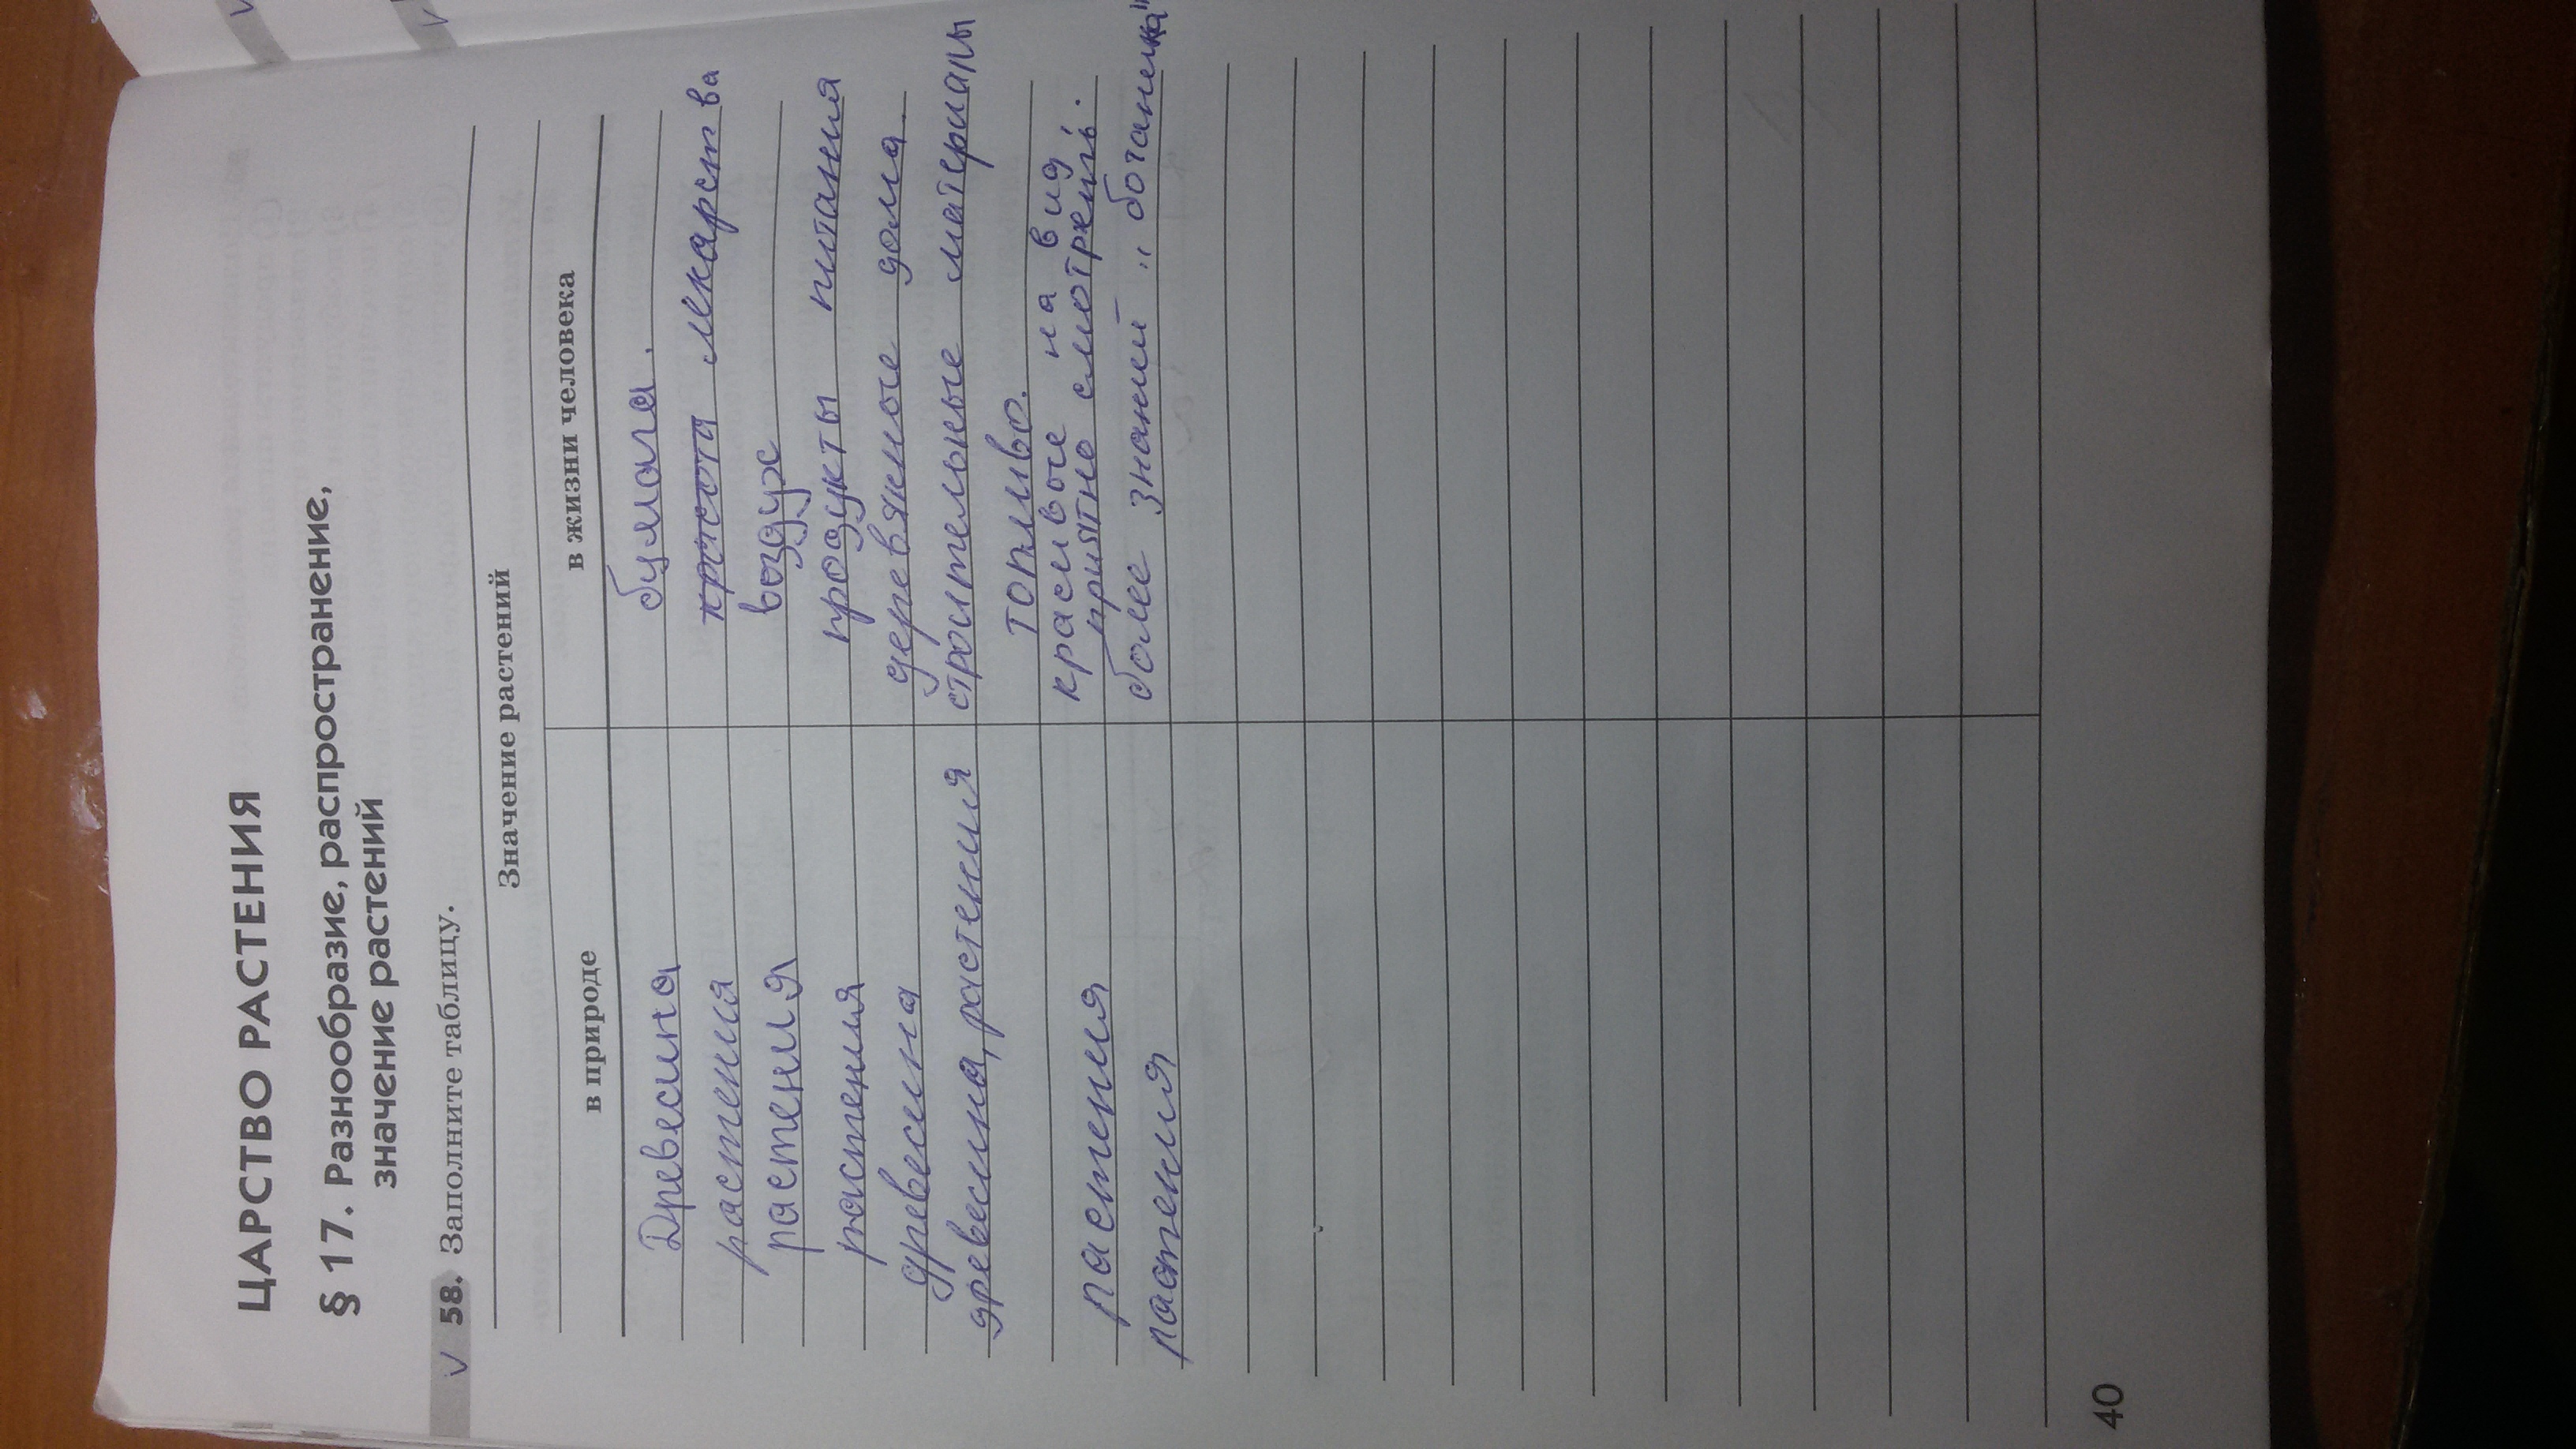 ЦАРСТВО РАСТЕНИЯ
§ 17. Разнообразие, распространение,
значение растений
V 58. Заполните таблицу.
Значение растений
в природе в жизни человека
Древесина бумага.
растения красота лекарства
растения воздух
растения продукты питания
древесина деревянные дома.
древесина, растения строительные материалы
топливо.
красивые на вид,
растения приятно смотреть.
растения более знаний "ботаника"
40